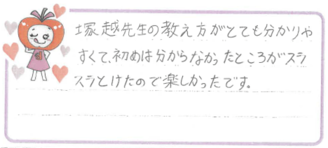 塚越先生の教え方がとても分かりや
すくて、初めは分からなかったところがスラ
スラとけたので楽しかったです。